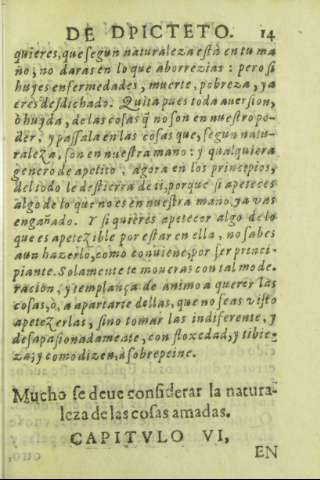 DE DPICTETO. 14
quieres, que segun naturaleza està en tu ma
no; no daras en lo que aborrezias: pero si
huyes enfermedades, muerte, pobreza, ya
eres desdichado. Quita pues toda auersion,
ò huyda, de las cosas q̃ no son en nuestro po-
der, y passala en las cosas que, segun natu-
raleza, son en nuestra mano: y qualquiera
genero de apetito, agora en los principios,
del todo le destierra de ti, porque si apeteces
algo de lo que no es en nuestra mano, ya vas
engañado. Y si quieres apetecer algo de lo
que es apetezible por estar en ella, no sabes
aun hazerlo, como conuiene, por ser princi-
piante. Solamente te moueras con tal mode-
racion, y templança de animo a querer las
cosas, ò, a apartarte dellas, que no seas visto
apetezerlas, sino tomar las indiferente, y
desapasionadamente, con floxedad, y tibie-
za, y como dizen, à sobrepeine.
Mucho se deue considerar la natura-
leza de las cosas amadas.
CAPITVLO VI,
EN